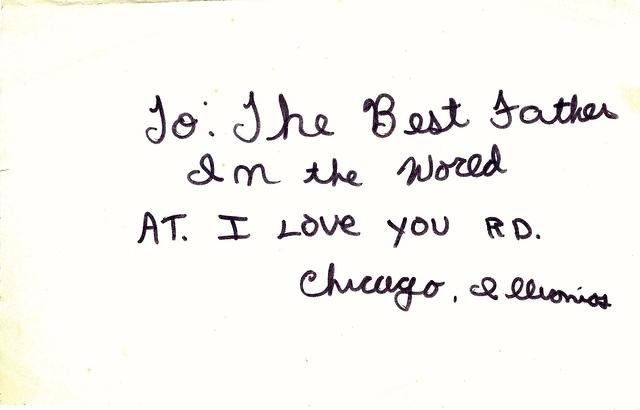 To: The Best Father
In the World
AT. I LOVE YOU RD.
Chicago, Illionios